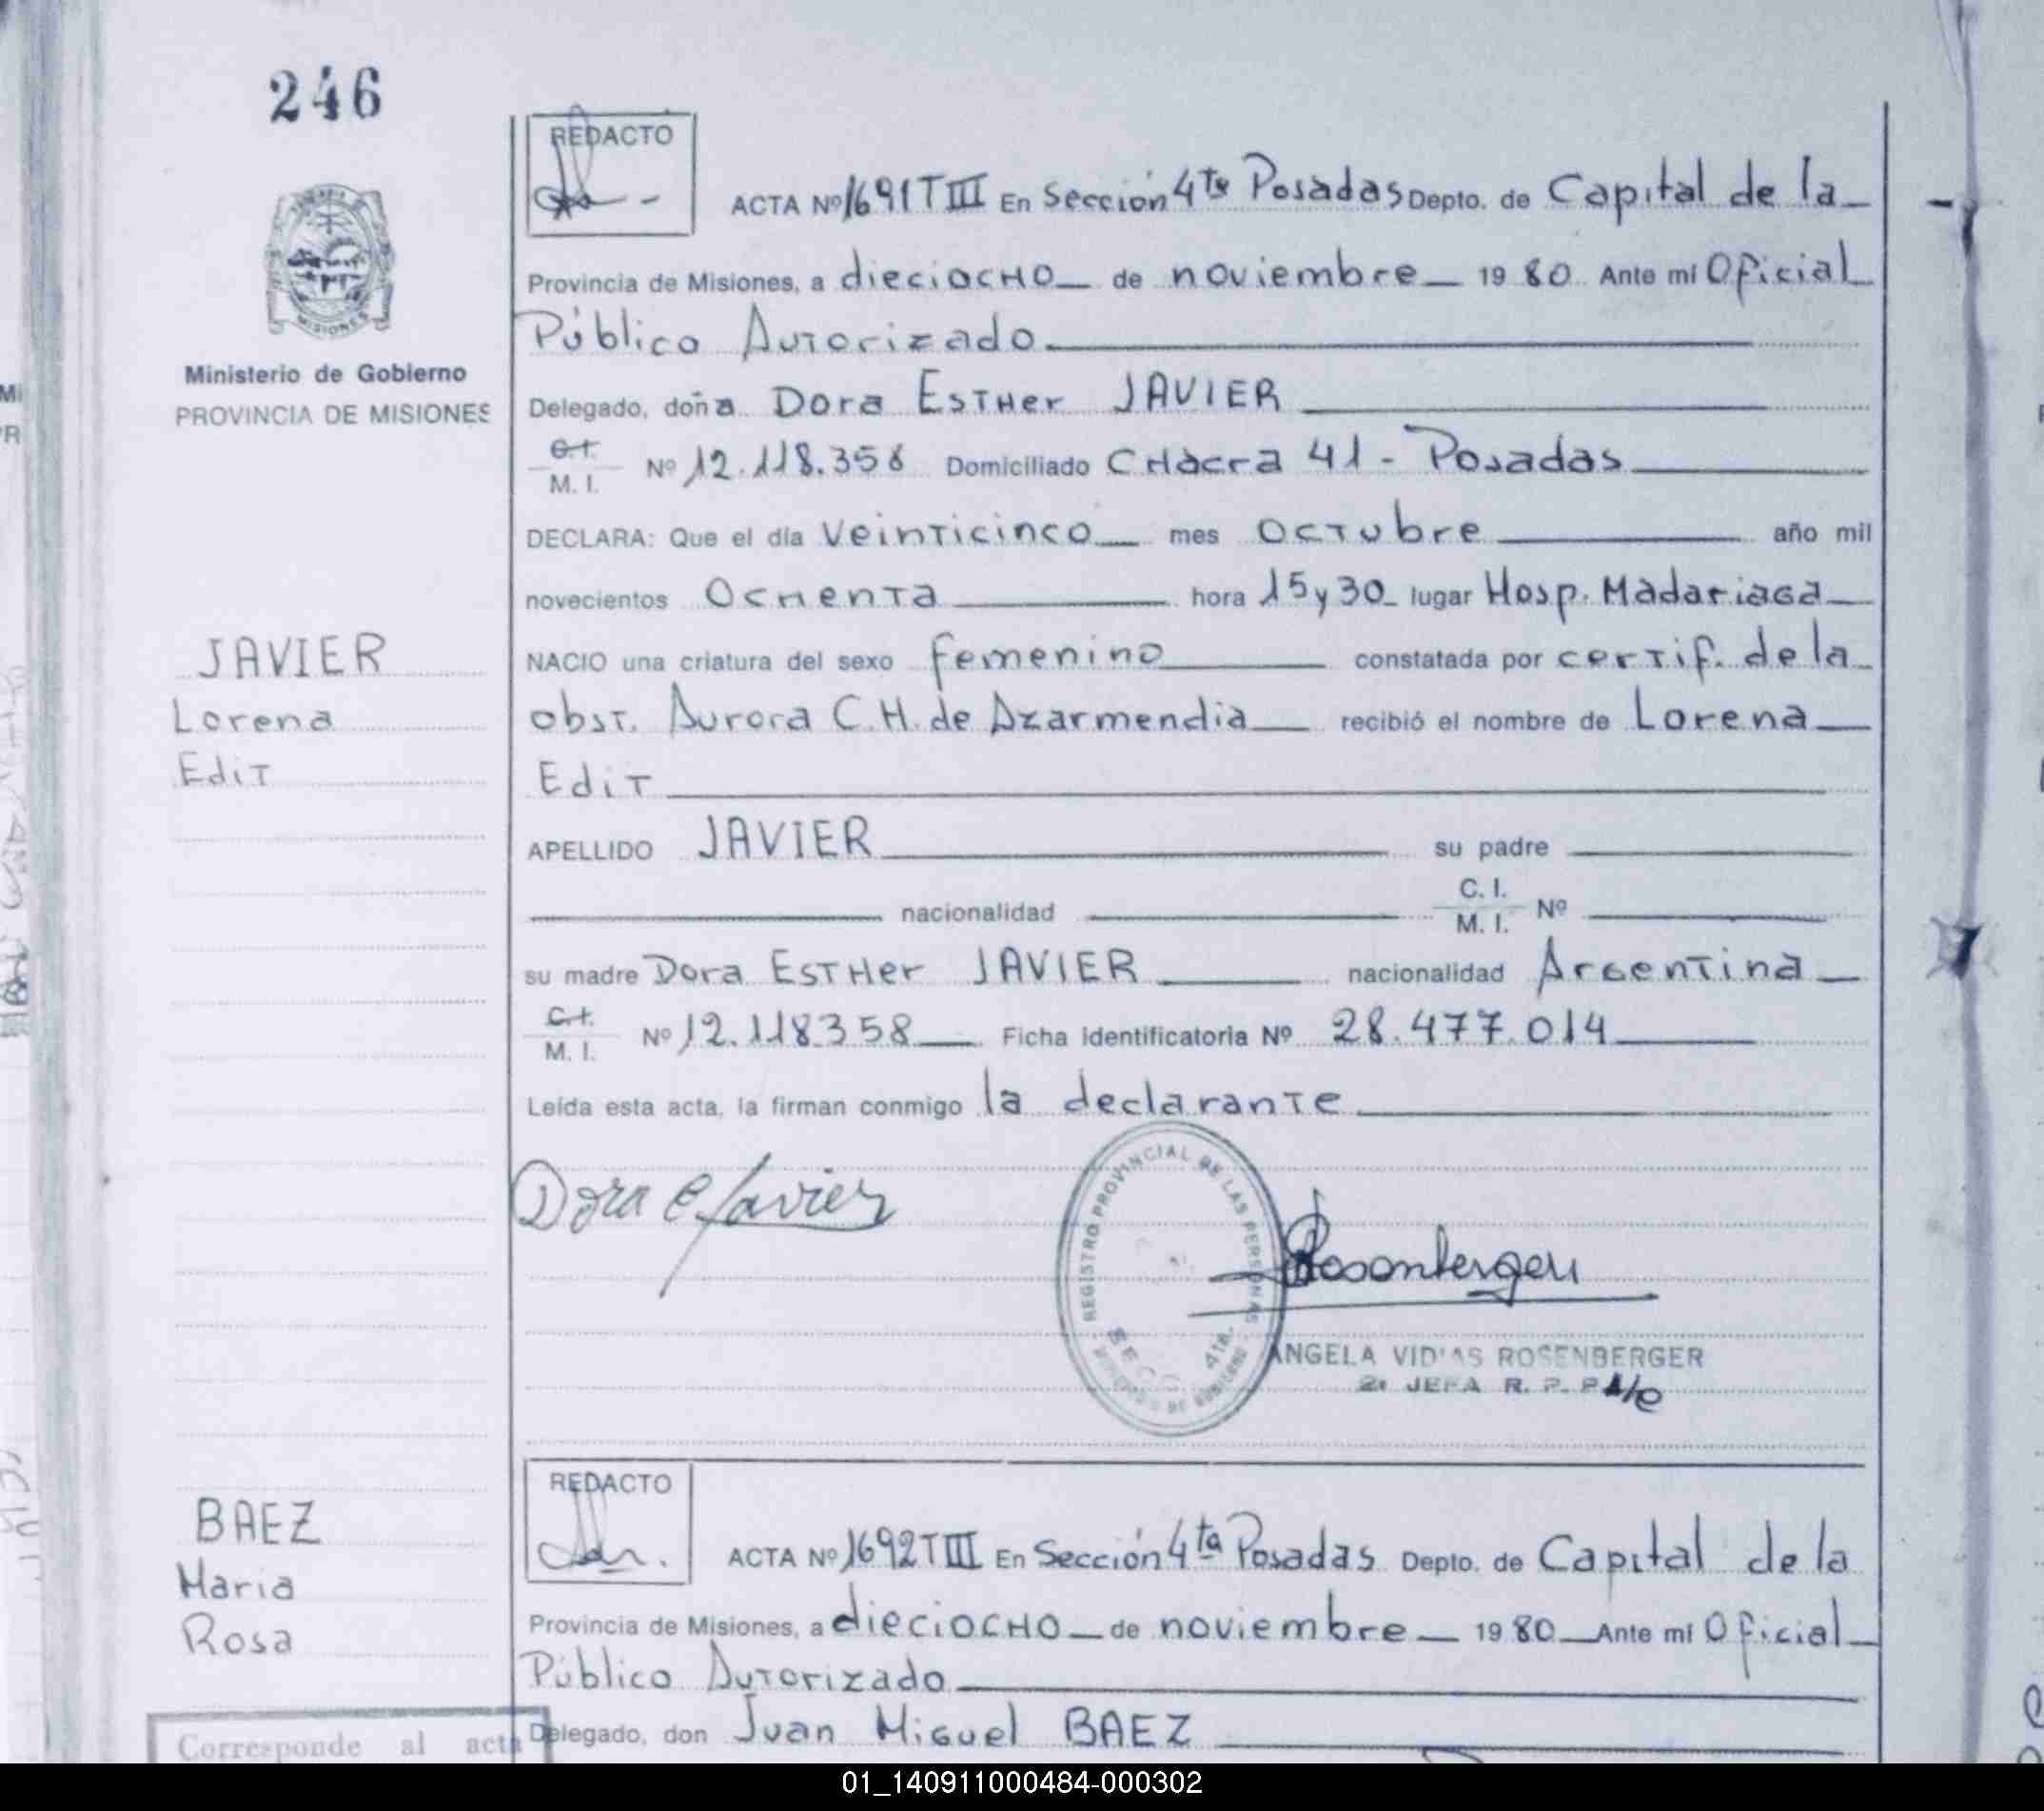 246
Ministerio de Gobierno
PROVINCIA DE MISIONES
REDACTO
ACTA Nº 1691 T III En Sección 4ta Posadas Depto. de Capital de la
Provincia de Misiones, a dieciocho de noviembre 1980 Ante mí Oficial
Público Autorizado
Delegado, doña Dora Esther JAVIER
C. I.
M. I. Nº 12.118.358 Domiciliado Chacra 41 - Posadas
DECLARA: Que el día Veinticinco mes Octubre año mil
novecientos Ochenta hora 15 y 30 lugar Hosp. Madariaga
NACIO una criatura del sexo femenino constatada por certif. de la
obst. Aurora C.H. de Azarmendia recibió el nombre de Lorena
Edit
JAVIER
Lorena
Edit
APELLIDO JAVIER su padre
nacionalidad C. I.
M. I. Nº
su madre Dora Esther JAVIER nacionalidad Argentina
C. I.
M. I. Nº 12.118.358 Ficha identificatoria Nº 28.477.014
Leída esta acta, la firman conmigo la declarante
Dora E Javier
REGISTRO PROVINCIAL DE LAS PERSONAS
SECC 4ta.
Rosenberger
ANGELA VIDIAS ROSENBERGER
2º JEFA R. P. P. A/c
BAEZ
Maria
Rosa
REDACTO
ACTA Nº 1692 T III En Sección 4ta Posadas Depto. de Capital de la
Provincia de Misiones, a dieciocho de noviembre 1980 Ante mí Oficial
Público Autorizado
Delegado, don Juan Miguel BAEZ
Corresponde al acta
01_140911000484-000302